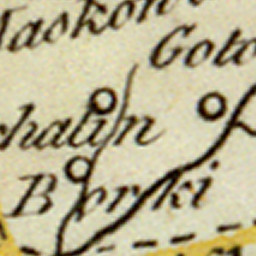 Maskon
Goto
chalin
Borki